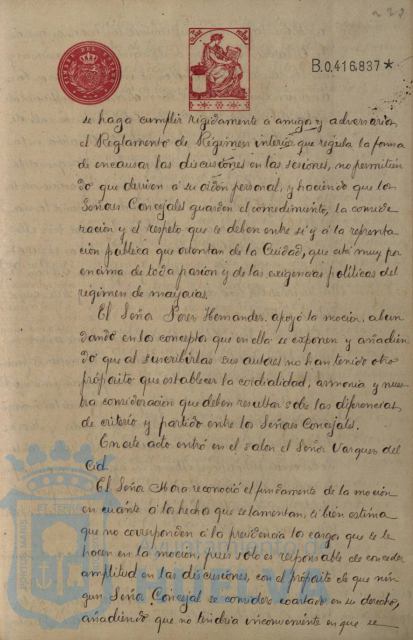 229
TIMBRE DEL ESTADO
B.0,416,837*
se haga cumplir rigidamente á amigos y adversarios
el Reglamento de Régimen interior que regula la forma
de encausar las discusiones en las sesiones, no permitien
do que deriven á su orden personal, y haciendo que los
Señores Concejales guarden el comedimiento, la conside
ración y el respeto que se deben entre si y á la represnta
ción pública que ostentan de la Ciudad, que está muy por
encima de toda pasion y de las exigencias políticas del
régimen de mayorias.
El Señor Perez Hernandez apoyó la moción, abun
dando en los conceptos que en ella se exponen y añadien
do que al suscribirla sus autores no han tenido otro
propósito que establecer la cordialidad, armonia y mutua
consideración que deben resultar sobre las diferencias
de criterio y partido entre los Señores Concejales.
En este acto entró en el salon el Señor Vazquez del
Cid.
El Señor Mora reconoció el fundamento de la moción
en cuanto á los hechos que se lamentan, si bién estima
que no corresponden á la presidencia los cargos que se le
hacen en la moción, pues solo es responsable de conceder
amplitud en las discusiones, con el propósito de que nin
gun Señor Concejal se considere coartado en su derecho,
añadiendo que no tendria inconveniente en que se